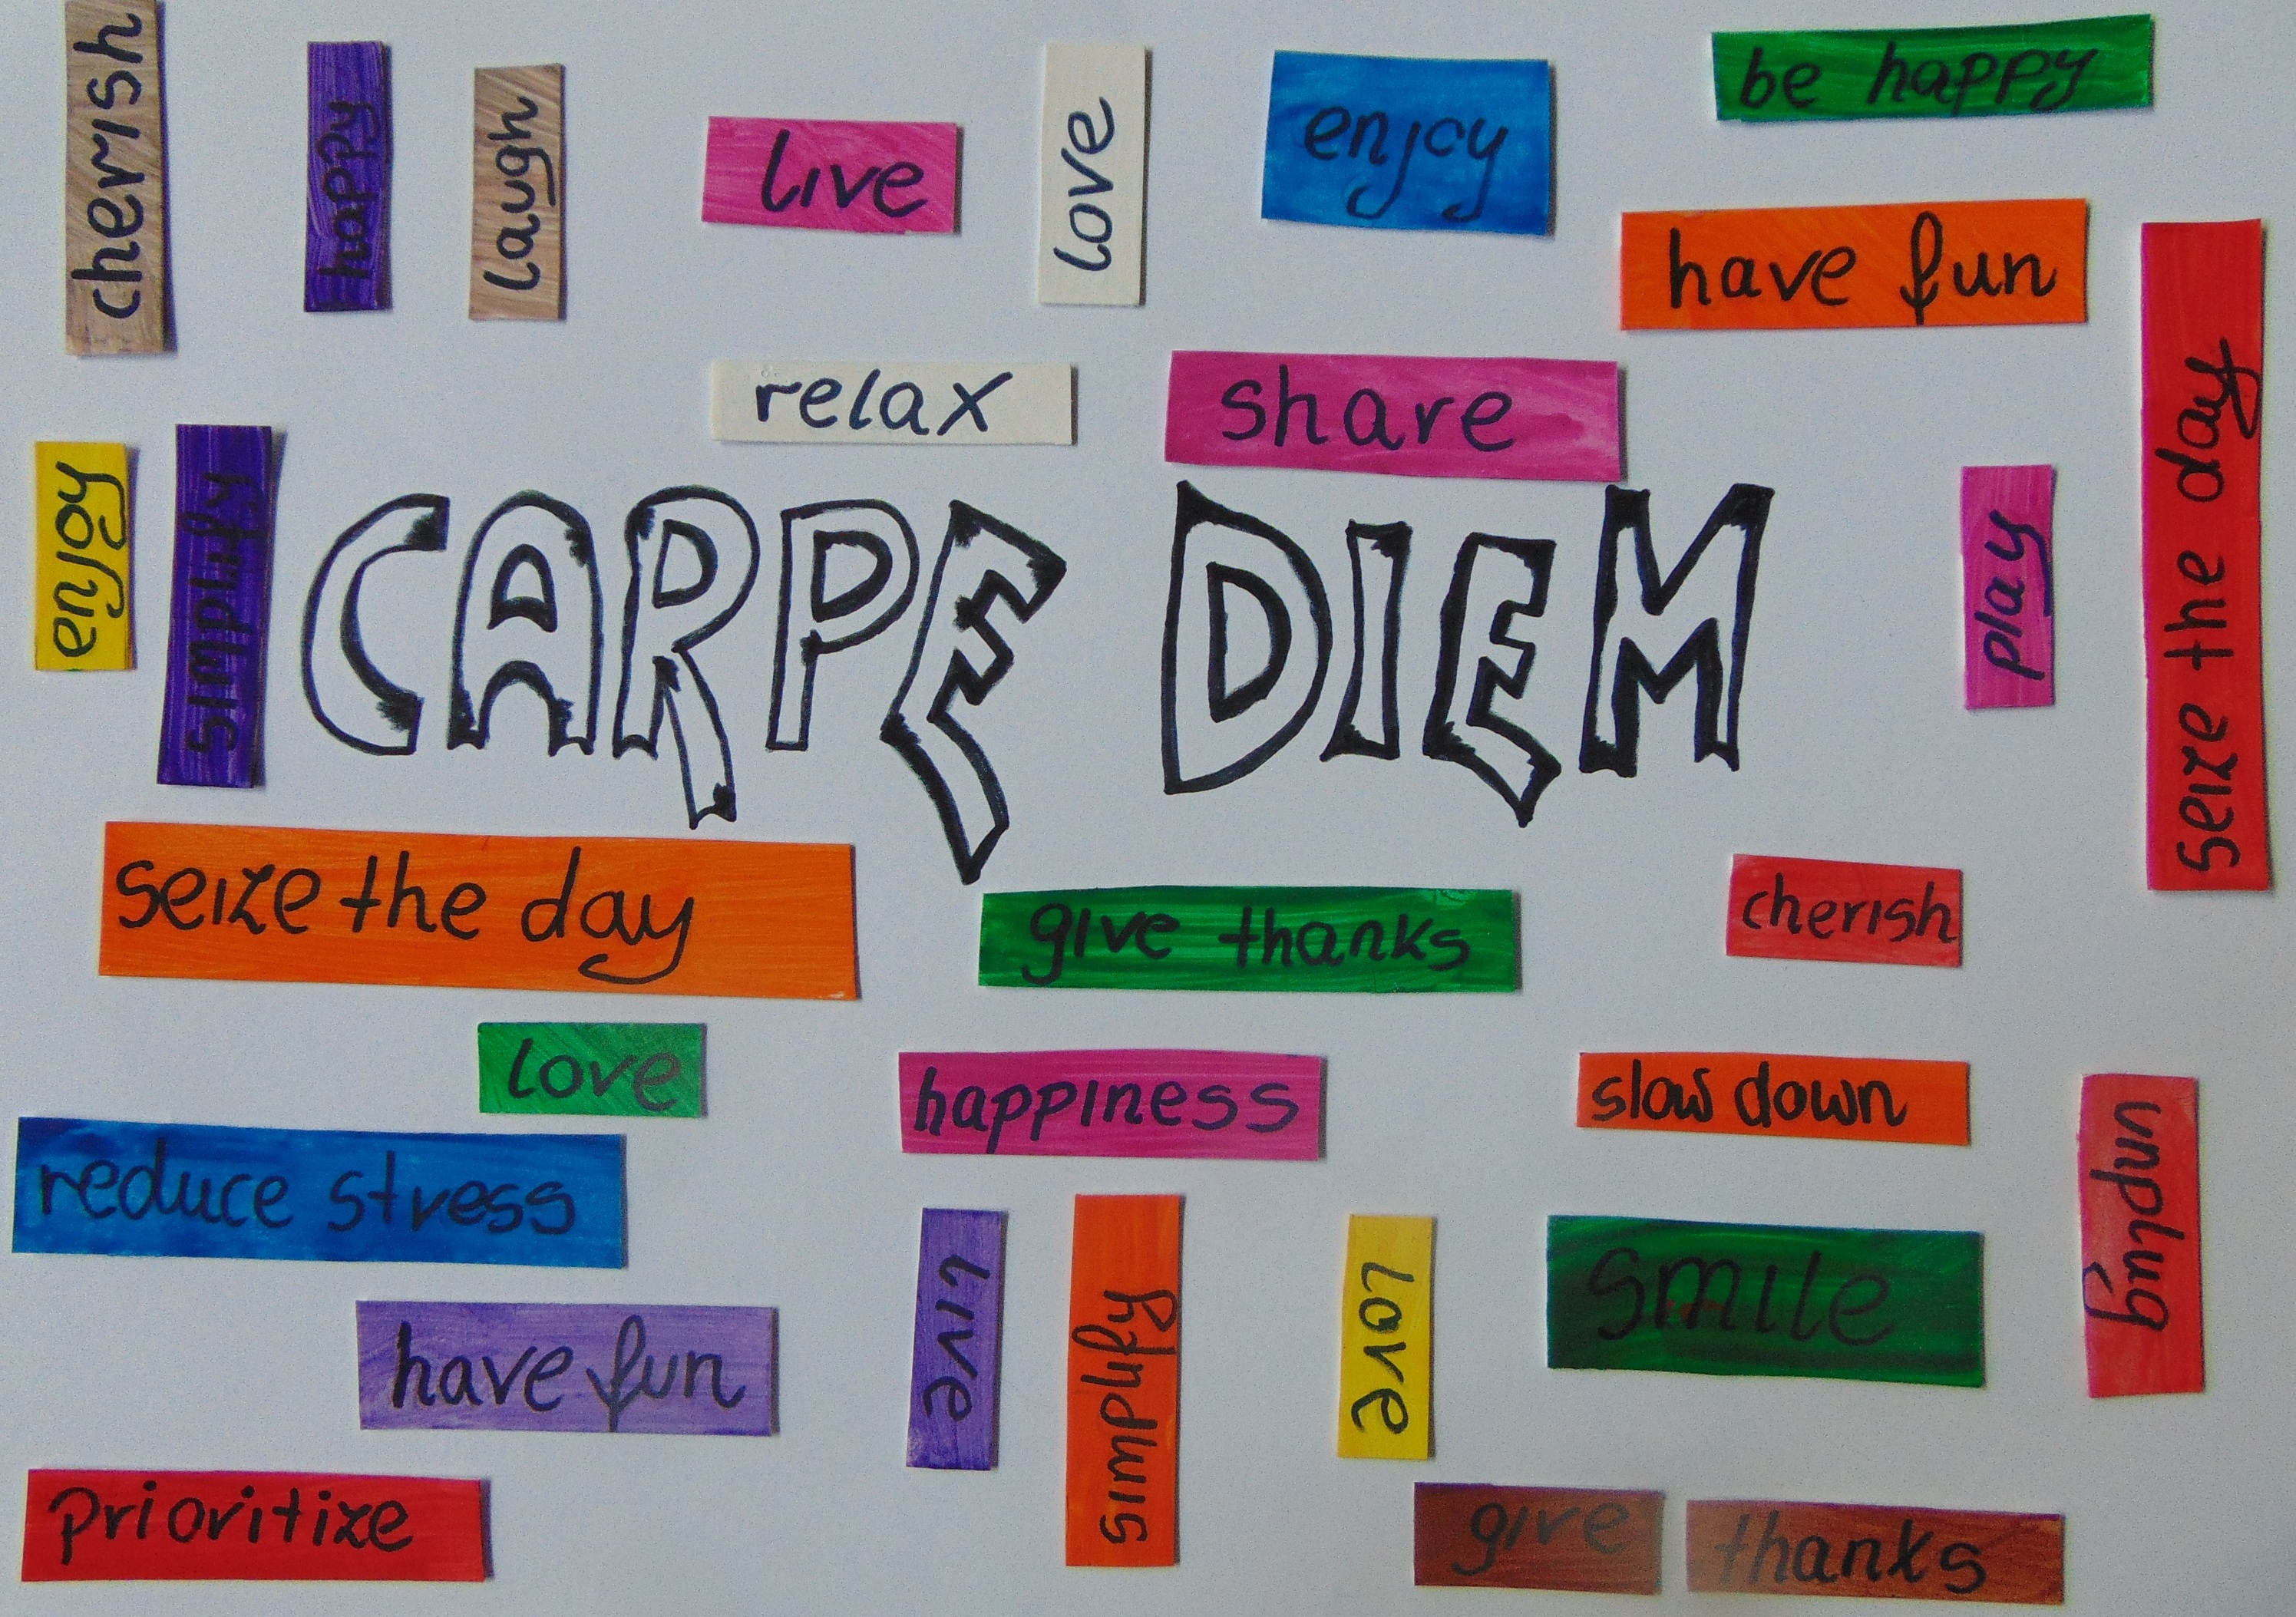 cherish
happy
laugh
live
love
enjoy
be happy
have fun
relax
share
seize the day
enjoy
simplify
CARPE DIEM
play
seize the day
give thanks
cherish
love
happiness
slow down
unplug
reduce stress
live
simplify
love
smile
have fun
prioritize
give thanks